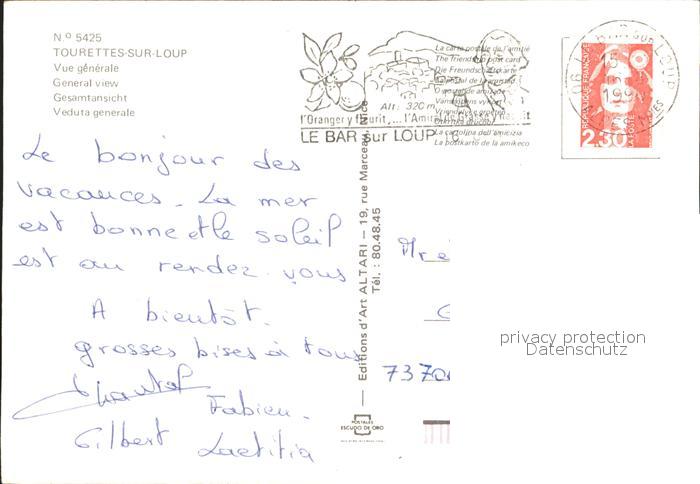 N.º 5425
TOURETTES-SUR-LOUP
Vue générale
General view
Gesamtansicht
Veduta generale
La carte postale de l'amitié
The friendship post card
Die Freundschaftskarte
Alt: 320 m
l'Oranger y fleurit, ... l'Amiral de Grasse y naquit
LE BAR sur LOUP
La cartolina dell'amicizia
La postkarto de la amikeco
REPUBLIQUE FRANÇAISE
2.30
LA POSTE
Le bonjour des
vacances. La mer
est bonne et le soleil
est au rendez vous
A bientôt.
grosses bises à tous
Chantal
Fabien.
Gilbert Laetitia
Editions d'Art ALTARI — 19, rue Marceau, Nice
Tél. : 80.48.45
POSTALES
ESCUDO DE ORO
7370
privacy protection
Datenschutz